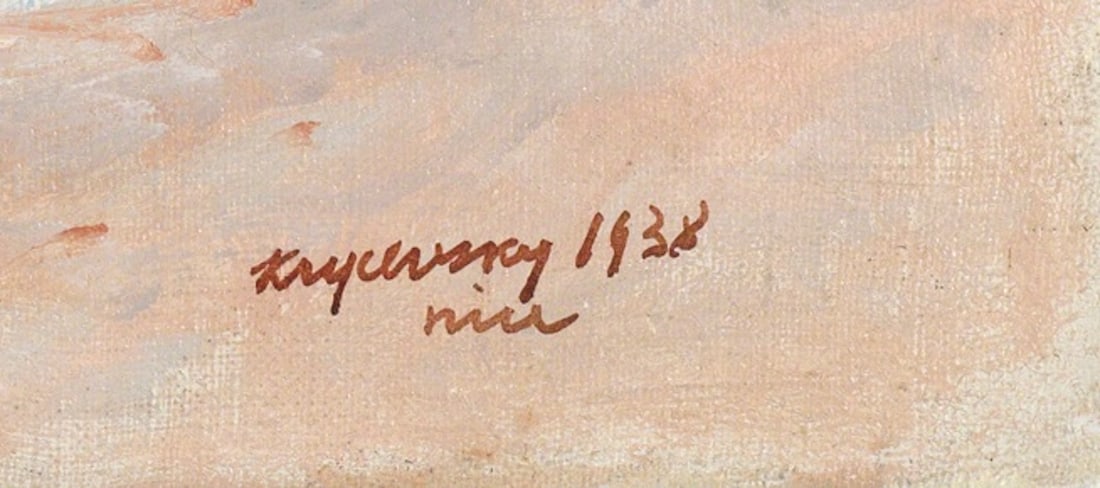 Krycevsky 1938
nice